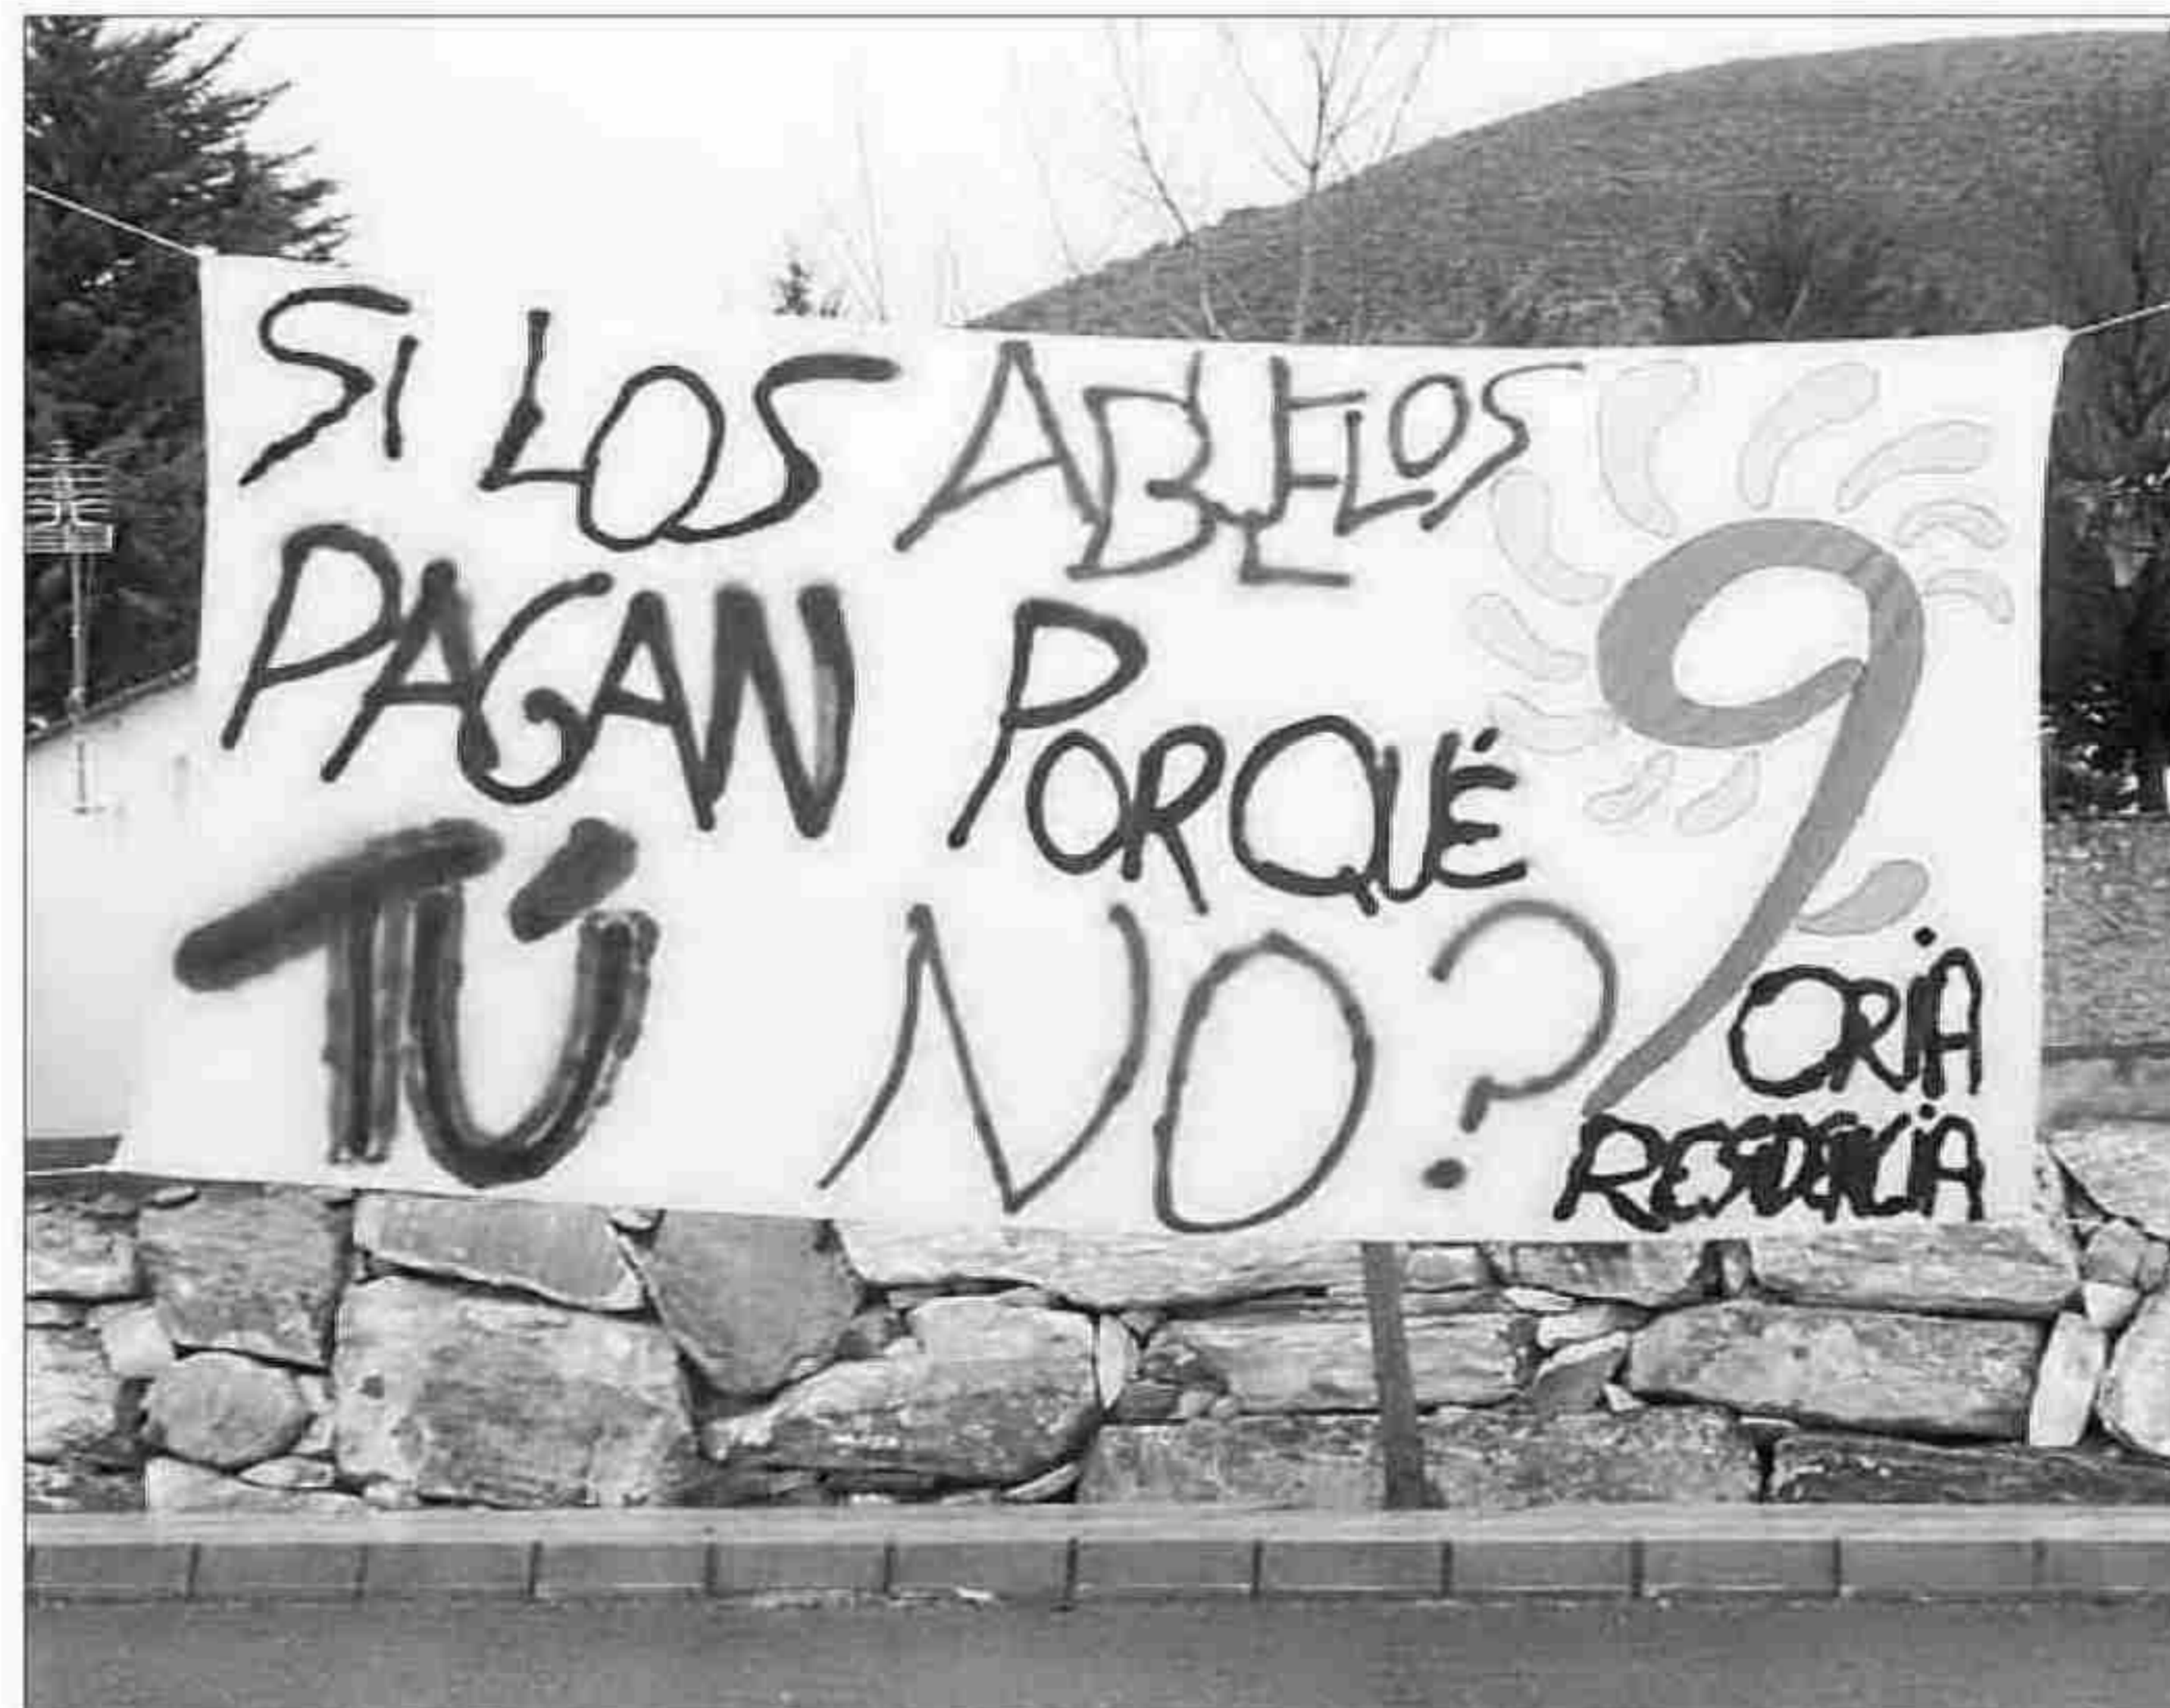 SI LOS ABUELOS
PAGAN PORQUÉ
TÚ NO?
9
ORIA
RESIDENCIA